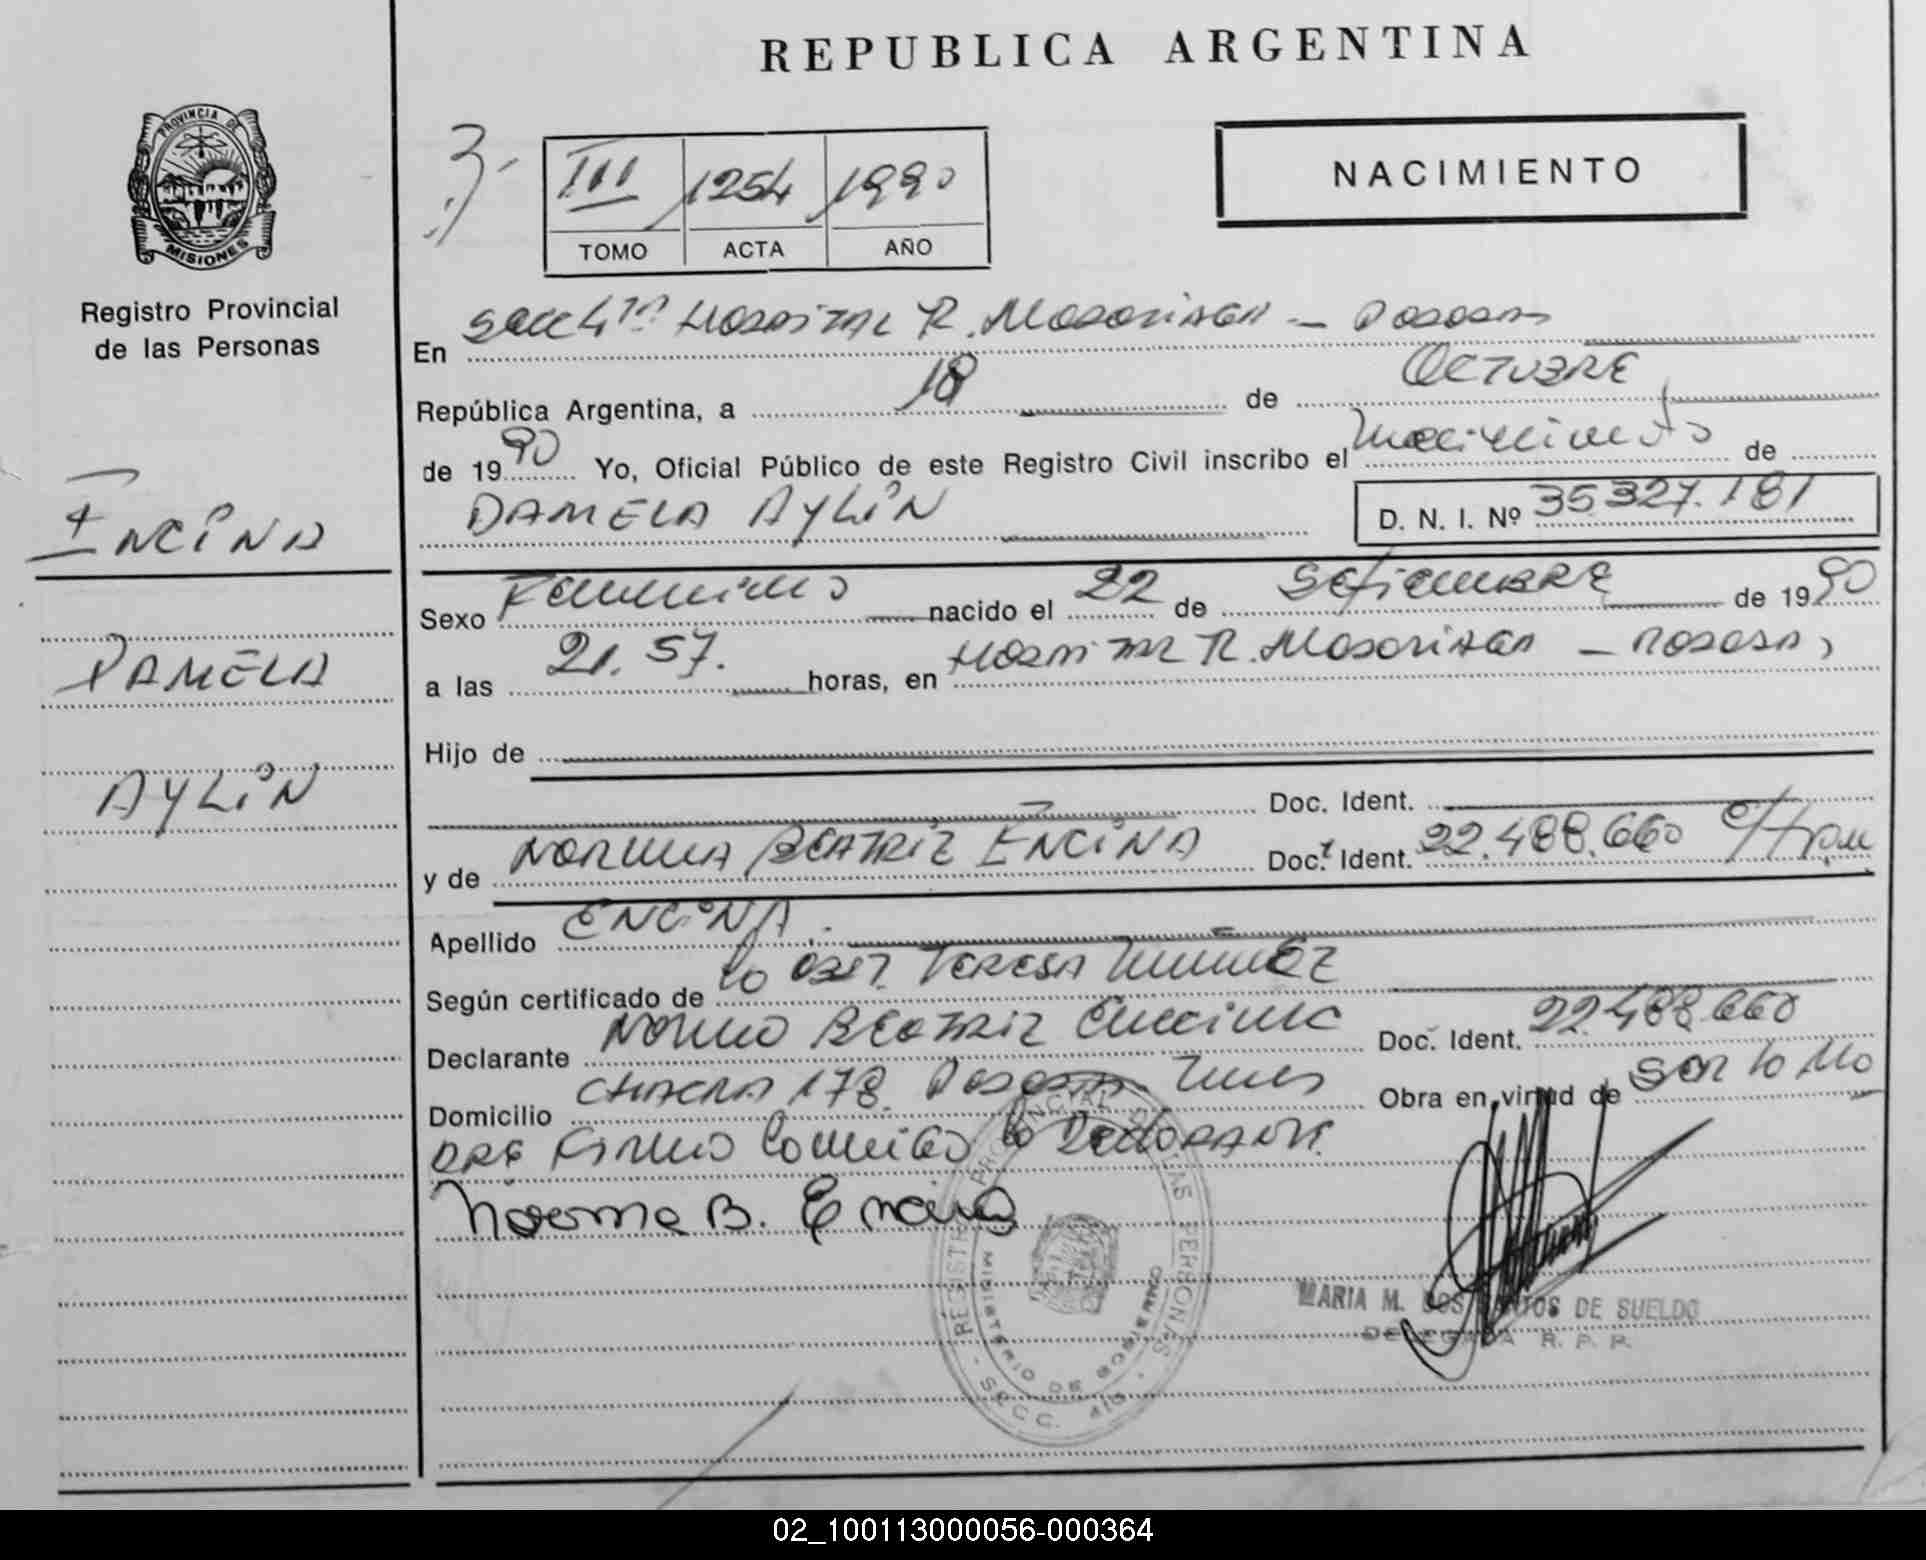 REPUBLICA ARGENTINA
PROVINCIA DE
MISIONES
Registro Provincial
de las Personas
III 1254 1990
TOMO ACTA AÑO
NACIMIENTO
En Secc 4ta Hospital R. Madariaga - Posadas
República Argentina, a 18 de OCTUBRE
de 1990 Yo, Oficial Público de este Registro Civil inscribo el nacimiento de
PAMELA AYLIN D. N. I. Nº 35.327.181
ENCINA
PAMELA
AYLIN
Sexo Femenino nacido el 22 de Setiembre de 1990
a las 21.57. horas, en Hospital R. Madariaga - Posadas
Hijo de
Doc. Ident.
y de NORMA BEATRIZ ENCINA Doc. Ident. 22.488.660
Apellido ENCINA.
Según certificado de la Obst. TERESA
Declarante Norma BEATRIZ Encina Doc. Ident. 22.488.660
Domicilio CHACRA 178. Posadas Mnes Obra en virtud de Ser la Ma
dre Firma Conmigo la Declarante.
Norma B. Encina
REGISTRO PROVINCIAL DE LAS PERSONAS
MINISTERIO DE GOBIERNO
SECC. 4ta
MARIA M. DOS SANTOS DE SUELDO
DELEGADA R. P. P.
02_100113000056-000364